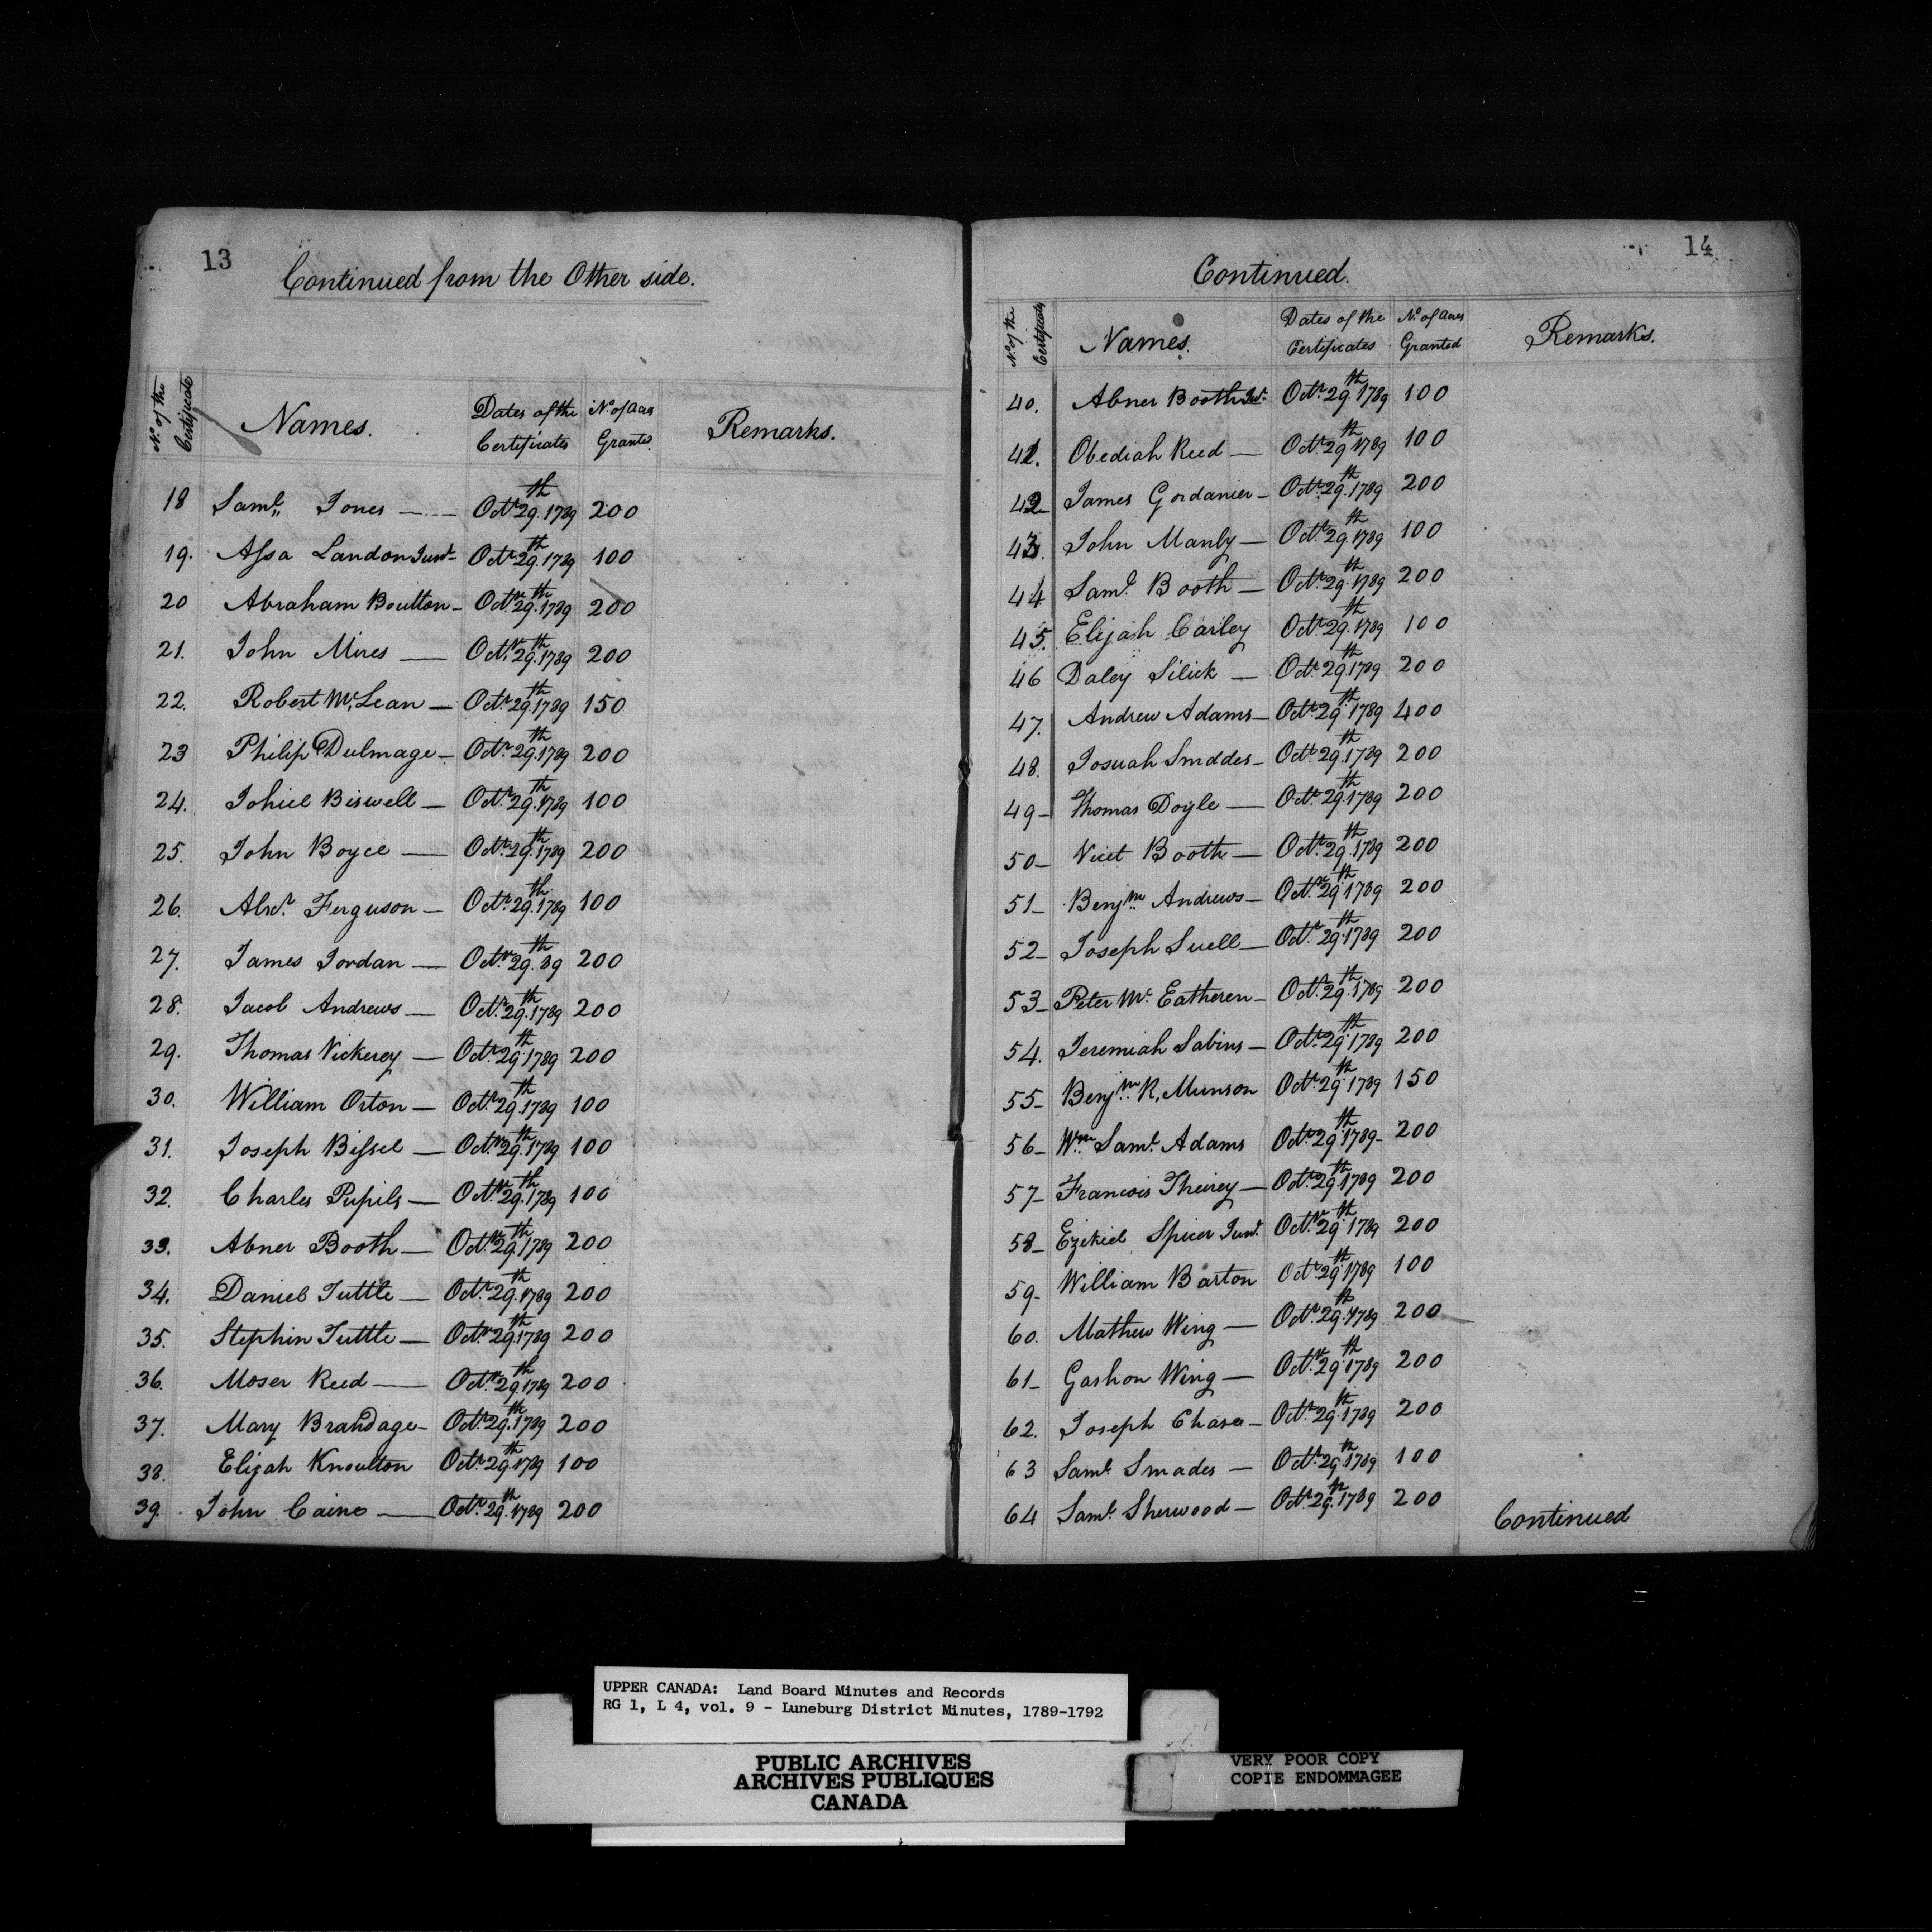 13
Continued from the Other side.
No. of the Certificate Names. Dates of the Certificates No. of Acres Granted. Remarks.
18 Saml. Jones — Octr. 29th. 1789 200
19. Assa Landon Junr. Octr. 29th. 1789 100
20 Abraham Boulton — Octr. 29th. 1789 200
21. John Mires — Octr. 29th. 1789 200
22. Robert Mc.Lean — Octr. 29th. 1789 150
23 Philip Dulmage — Octr. 29th. 1789 200
24. Johiel Biswell — Octr. 29th. 1789 100
25. John Boyce — Octr. 29th. 1789 200
26. Alxr. Ferguson — Octr. 29th. 1789 100
27. James Jordan — Octr. 29th. 89 200
28. Jacob Andrews — Octr. 29th. 1789 200
29. Thomas Vickerey — Octr. 29th. 1789 200
30. William Orton — Octr. 29th. 1789 100
31. Joseph Bissel — Octr. 29th. 1789 100
32. Charles Pupils — Octr. 29th. 1789 100
33. Abner Booth — Octr. 29th. 1789 200
34. Daniel Tuttle — Octr. 29th. 1789 200
35. Stephin Tuttle — Octr. 29th. 1789 200
36. Moser Reed — Octr. 29th. 1789 200
37. Mary Brandage — Octr. 29th. 1789 200
38. Elijah Knoulton Octr. 29th. 1789 100
39. John Caine — Octr. 29th. 1789 200
14
Continued.
No. of the Certificate Names. Dates of the Certificates No. of Acres Granted Remarks.
40. Abner Booth Jr. Octr. 29th. 1789 100
41. Obediah Reed — Octr. 29th. 1789 100
42 James Gordanier — Octr. 29th. 1789 200
43. John Manly — Octr. 29th. 1789 100
44 Saml. Booth — Octr. 29th. 1789 200
45. Elijah Carley Octr. 29th. 1789 100
46 Daley Silick — Octr. 29th. 1789 200
47. Andrew Adams — Octr. 29th. 1789 400
48. Josuah Smddes — Octr. 29th. 1789 200
49 — Thomas Doyle — Octr. 29th. 1789 200
50 — Booth — Octr. 29th. 1789 200
51 — Benjmn. Andrews — Octr. 29th. 1789 200
52 — Joseph Suell — Octr. 29th. 1789 200
53 — Peter Mc. Eatheren — Octr. 29th. 1789 200
54. Jeremiah Sabins — Octr. 29th. 1789 200
55 — Benjmn. R. Munson Octr. 29th. 1789 150
56 — Wm. Saml. Adams Octr. 29th. 1789 — 200
57 — Francois Theirey — Octr. 29th. 1789 200
58 — Ezekiel Spicer Junr. Octr. 29th. 1789 200
59 — William Barton Octr. 29th. 1789 100
60. Mathew Wing — Octr. 29th. 1789 200
61 — Gashon Wing — Octr. 29th. 1789 200
62. Joseph Chase — Octr. 29th. 1789 200
63 Saml. Smades — Octr. 29th. 1789 100
64 Saml. Sherwood — Octr. 29th. 1789 200
Continued
UPPER CANADA: Land Board Minutes and Records
RG 1, L 4, vol. 9 - Luneburg District Minutes, 1789-1792
PUBLIC ARCHIVES
ARCHIVES PUBLIQUES
CANADA
VERY POOR COPY
COPIE ENDOMMAGEE